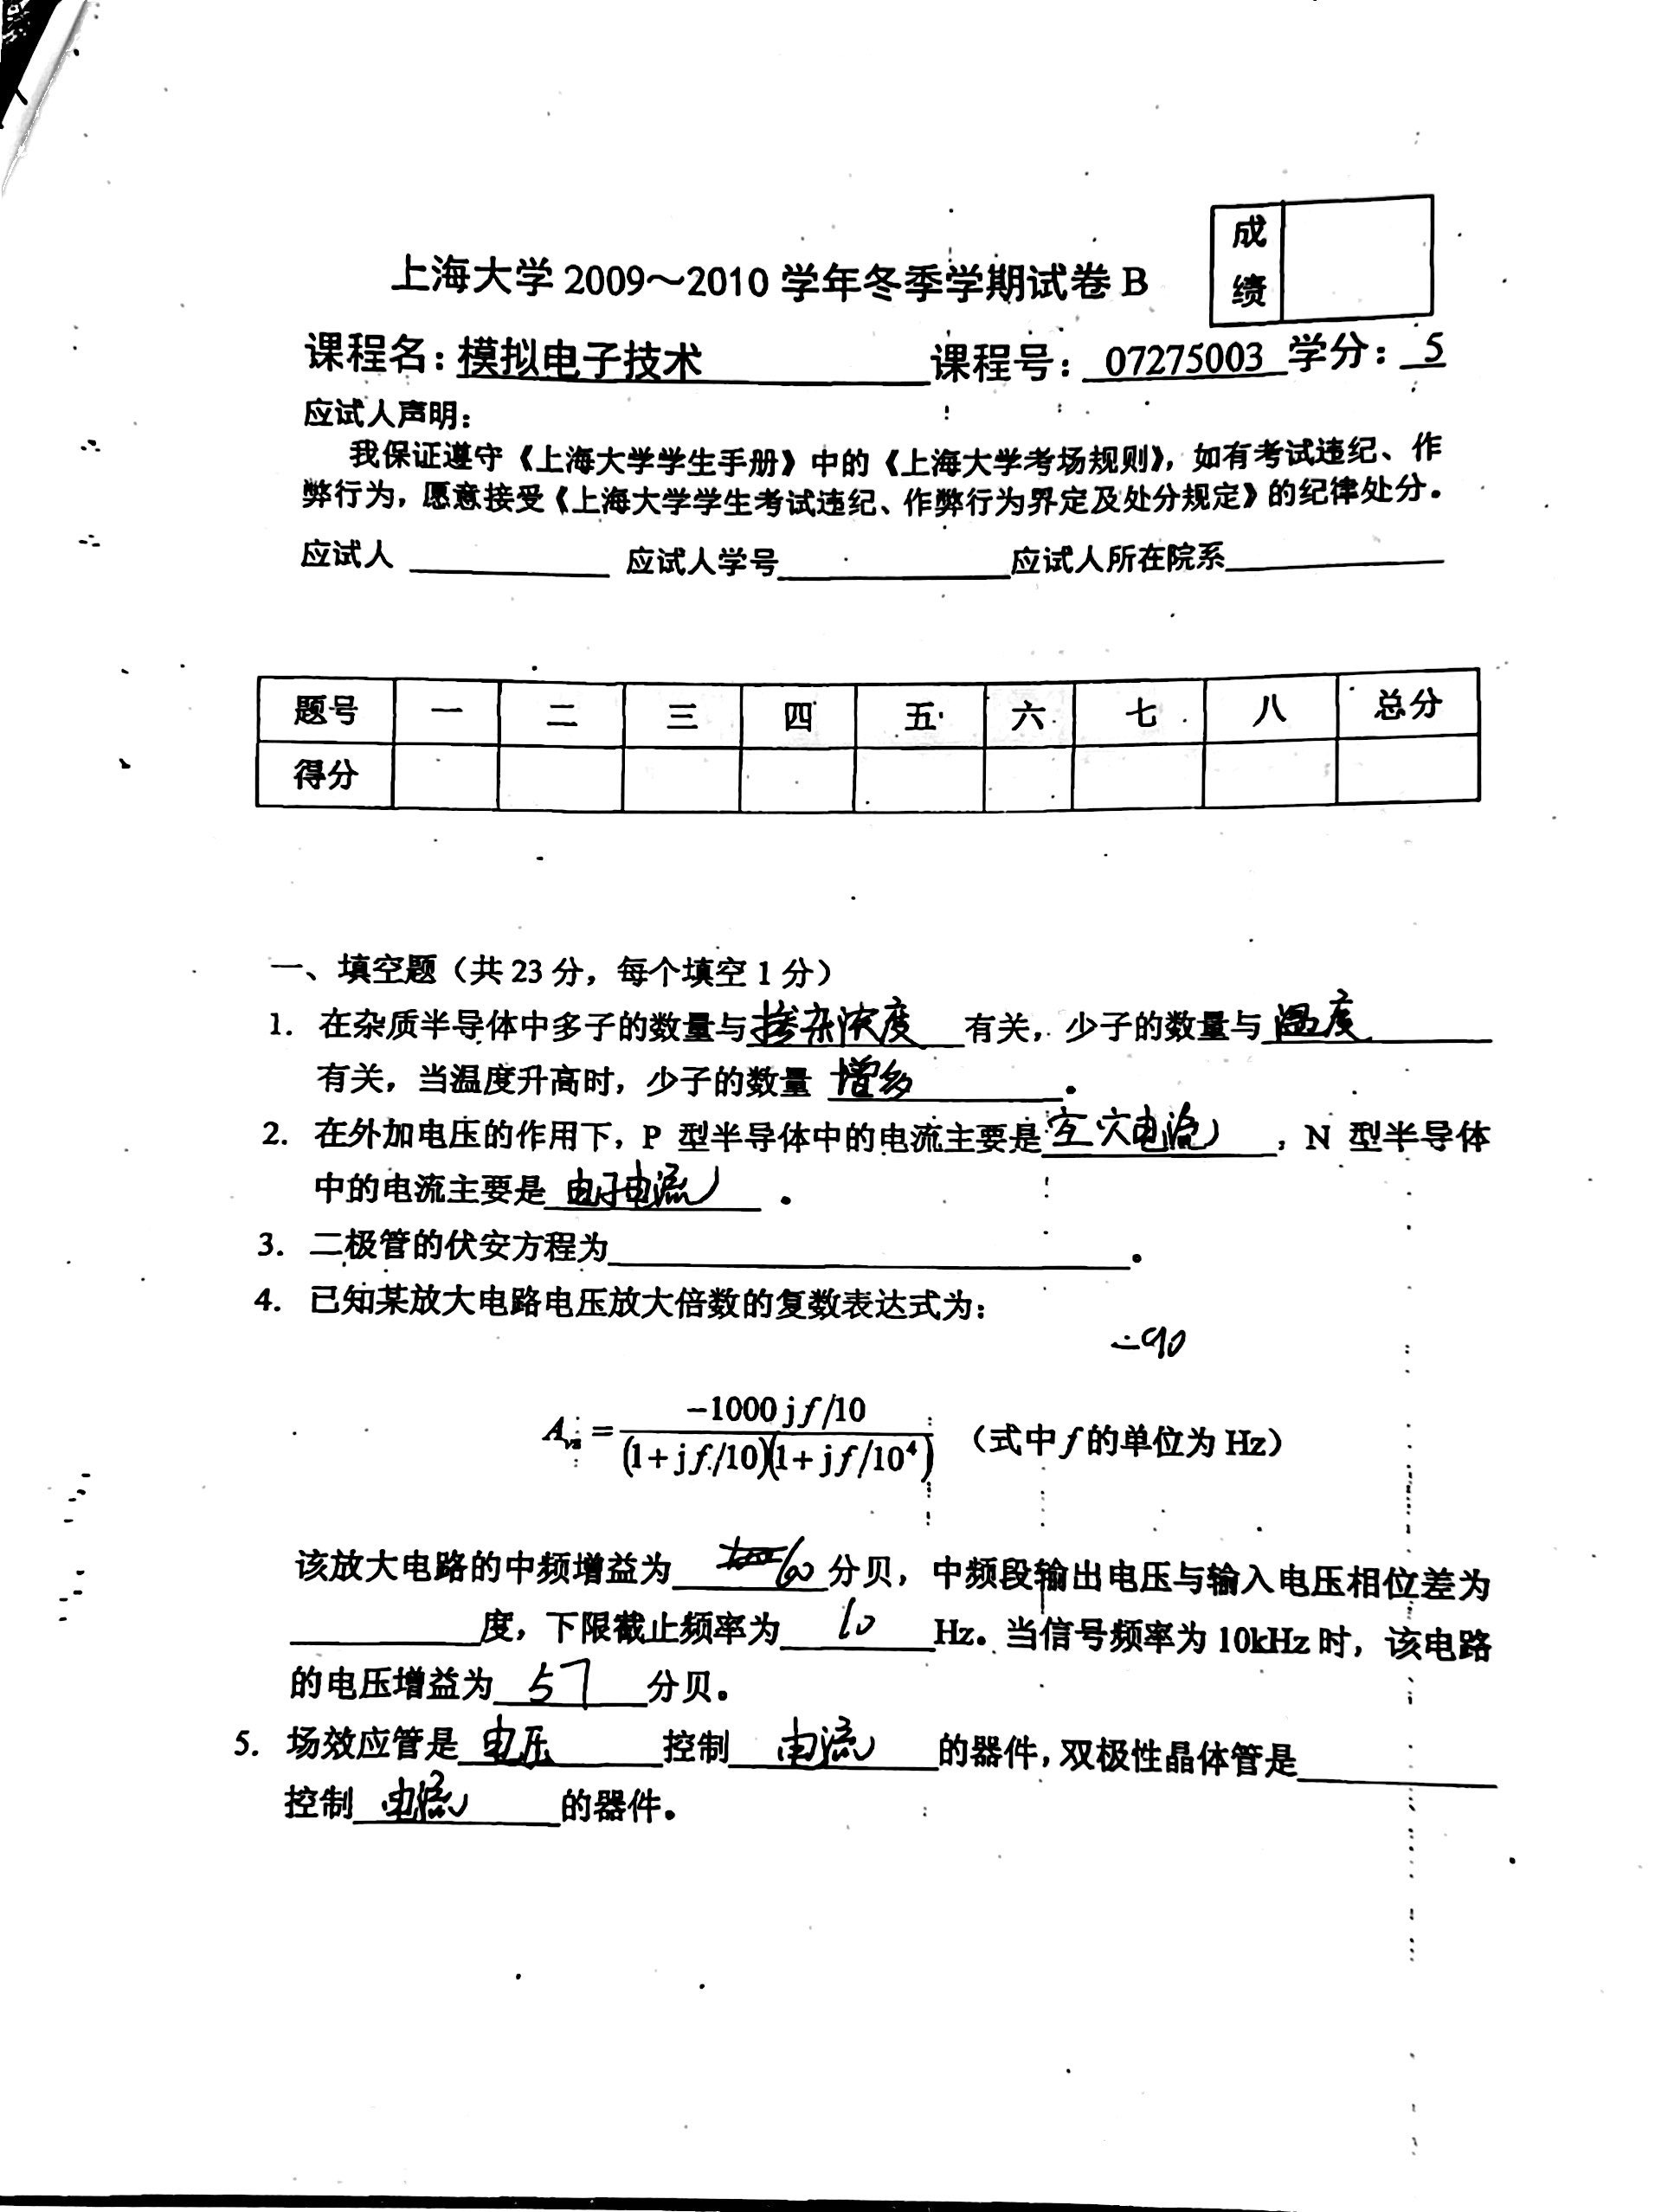 成绩
上海大学 2009～2010 学年冬季学期试卷 B
课程名：模拟电子技术 课程号：07275003 学分：5
应试人声明：
我保证遵守《上海大学学生手册》中的《上海大学考场规则》，如有考试违纪、作
弊行为，愿意接受《上海大学学生考试违纪、作弊行为界定及处分规定》的纪律处分。
应试人 应试人学号 应试人所在院系
题号 一 二 三 四 五 六 七 八 总分
得分
一、填空题（共 23 分，每个填空 1 分）
1. 在杂质半导体中多子的数量与 掺杂浓度 有关，少子的数量与 温度
有关，当温度升高时，少子的数量 增多 。
2. 在外加电压的作用下，P 型半导体中的电流主要是 空穴电流 ，N 型半导体
中的电流主要是 电子电流 。
3. 二极管的伏安方程为 。
4. 已知某放大电路电压放大倍数的复数表达式为：
-90
Avs = −1000 jf/10 / (1+jf/10)(1+jf/10⁴) （式中 f 的单位为 Hz）
该放大电路的中频增益为 60 分贝，中频段输出电压与输入电压相位差为
度，下限截止频率为 10 Hz。当信号频率为 10kHz 时，该电路
的电压增益为 57 分贝。
5. 场效应管是 电压 控制 电流 的器件，双极性晶体管是
控制 电流 的器件。